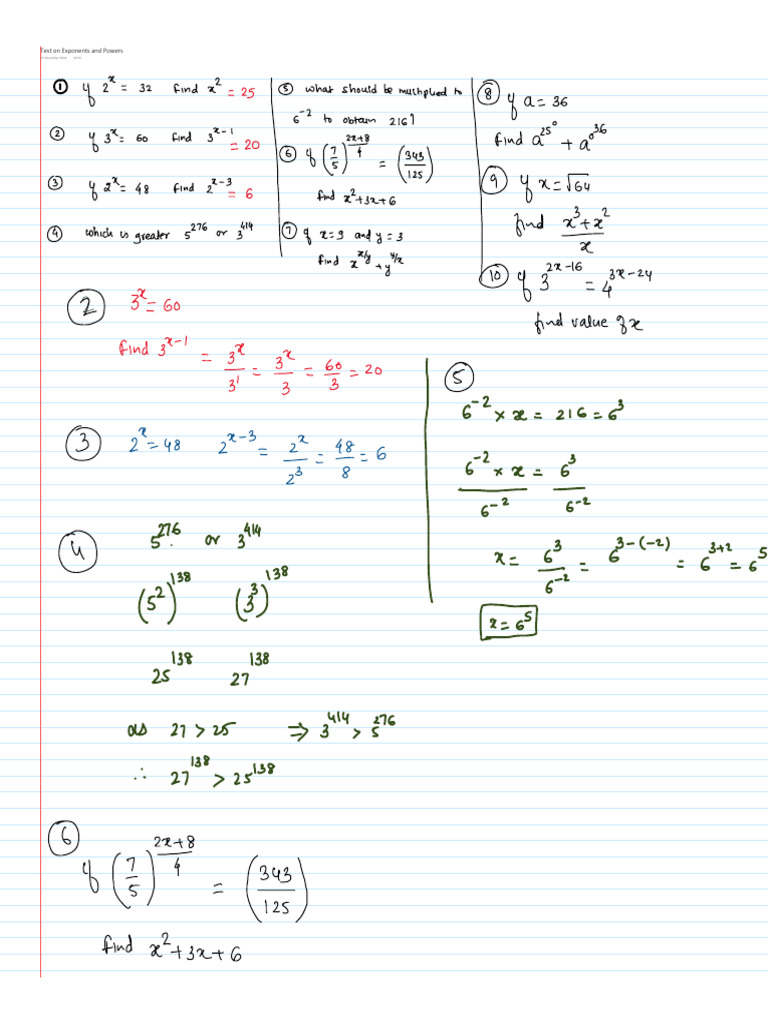 Test on Exponents and Powers
① If 2^x = 32 find x^2 = 25
② If 3^x = 60 find 3^(x-1) = 20
③ If 2^x = 48 find 2^(x-3) = 6
④ which is greater 5^276 or 3^414
⑤ what should be multiplied to
6^-2 to obtain 216?
⑥ If (7/5)^((2x+8)/4) = (343/125)
find x^2+3x+6
⑦ If x=3 and y=3
find x^(x/y) + y^(y/x)
⑧ If a = 36
find a^25^0 + a^0^36
⑨ If x = √64
find (x^3 + x^2)/x
⑩ If 3^(2x-16) = 4^(3x-24)
find value of x
② 3^x = 60
find 3^(x-1) = 3^x/3^1 = 3^x/3 = 60/3 = 20
③ 2^x = 48 2^(x-3) = 2^x/2^3 = 48/8 = 6
④ 5^276 or 3^414
(5^2)^138 (3^3)^138
25^138 27^138
as 27 > 25 ⇒ 3^414 > 5^276
∴ 27^138 > 25^138
⑤
6^-2 × x = 216 = 6^3
(6^-2 × x)/6^-2 = 6^3/6^-2
x = 6^3/6^-2 = 6^(3-(-2)) = 6^(3+2) = 6^5
x = 6^5
⑥ If (7/5)^((2x+8)/4) = (343/125)
find x^2+3x+6